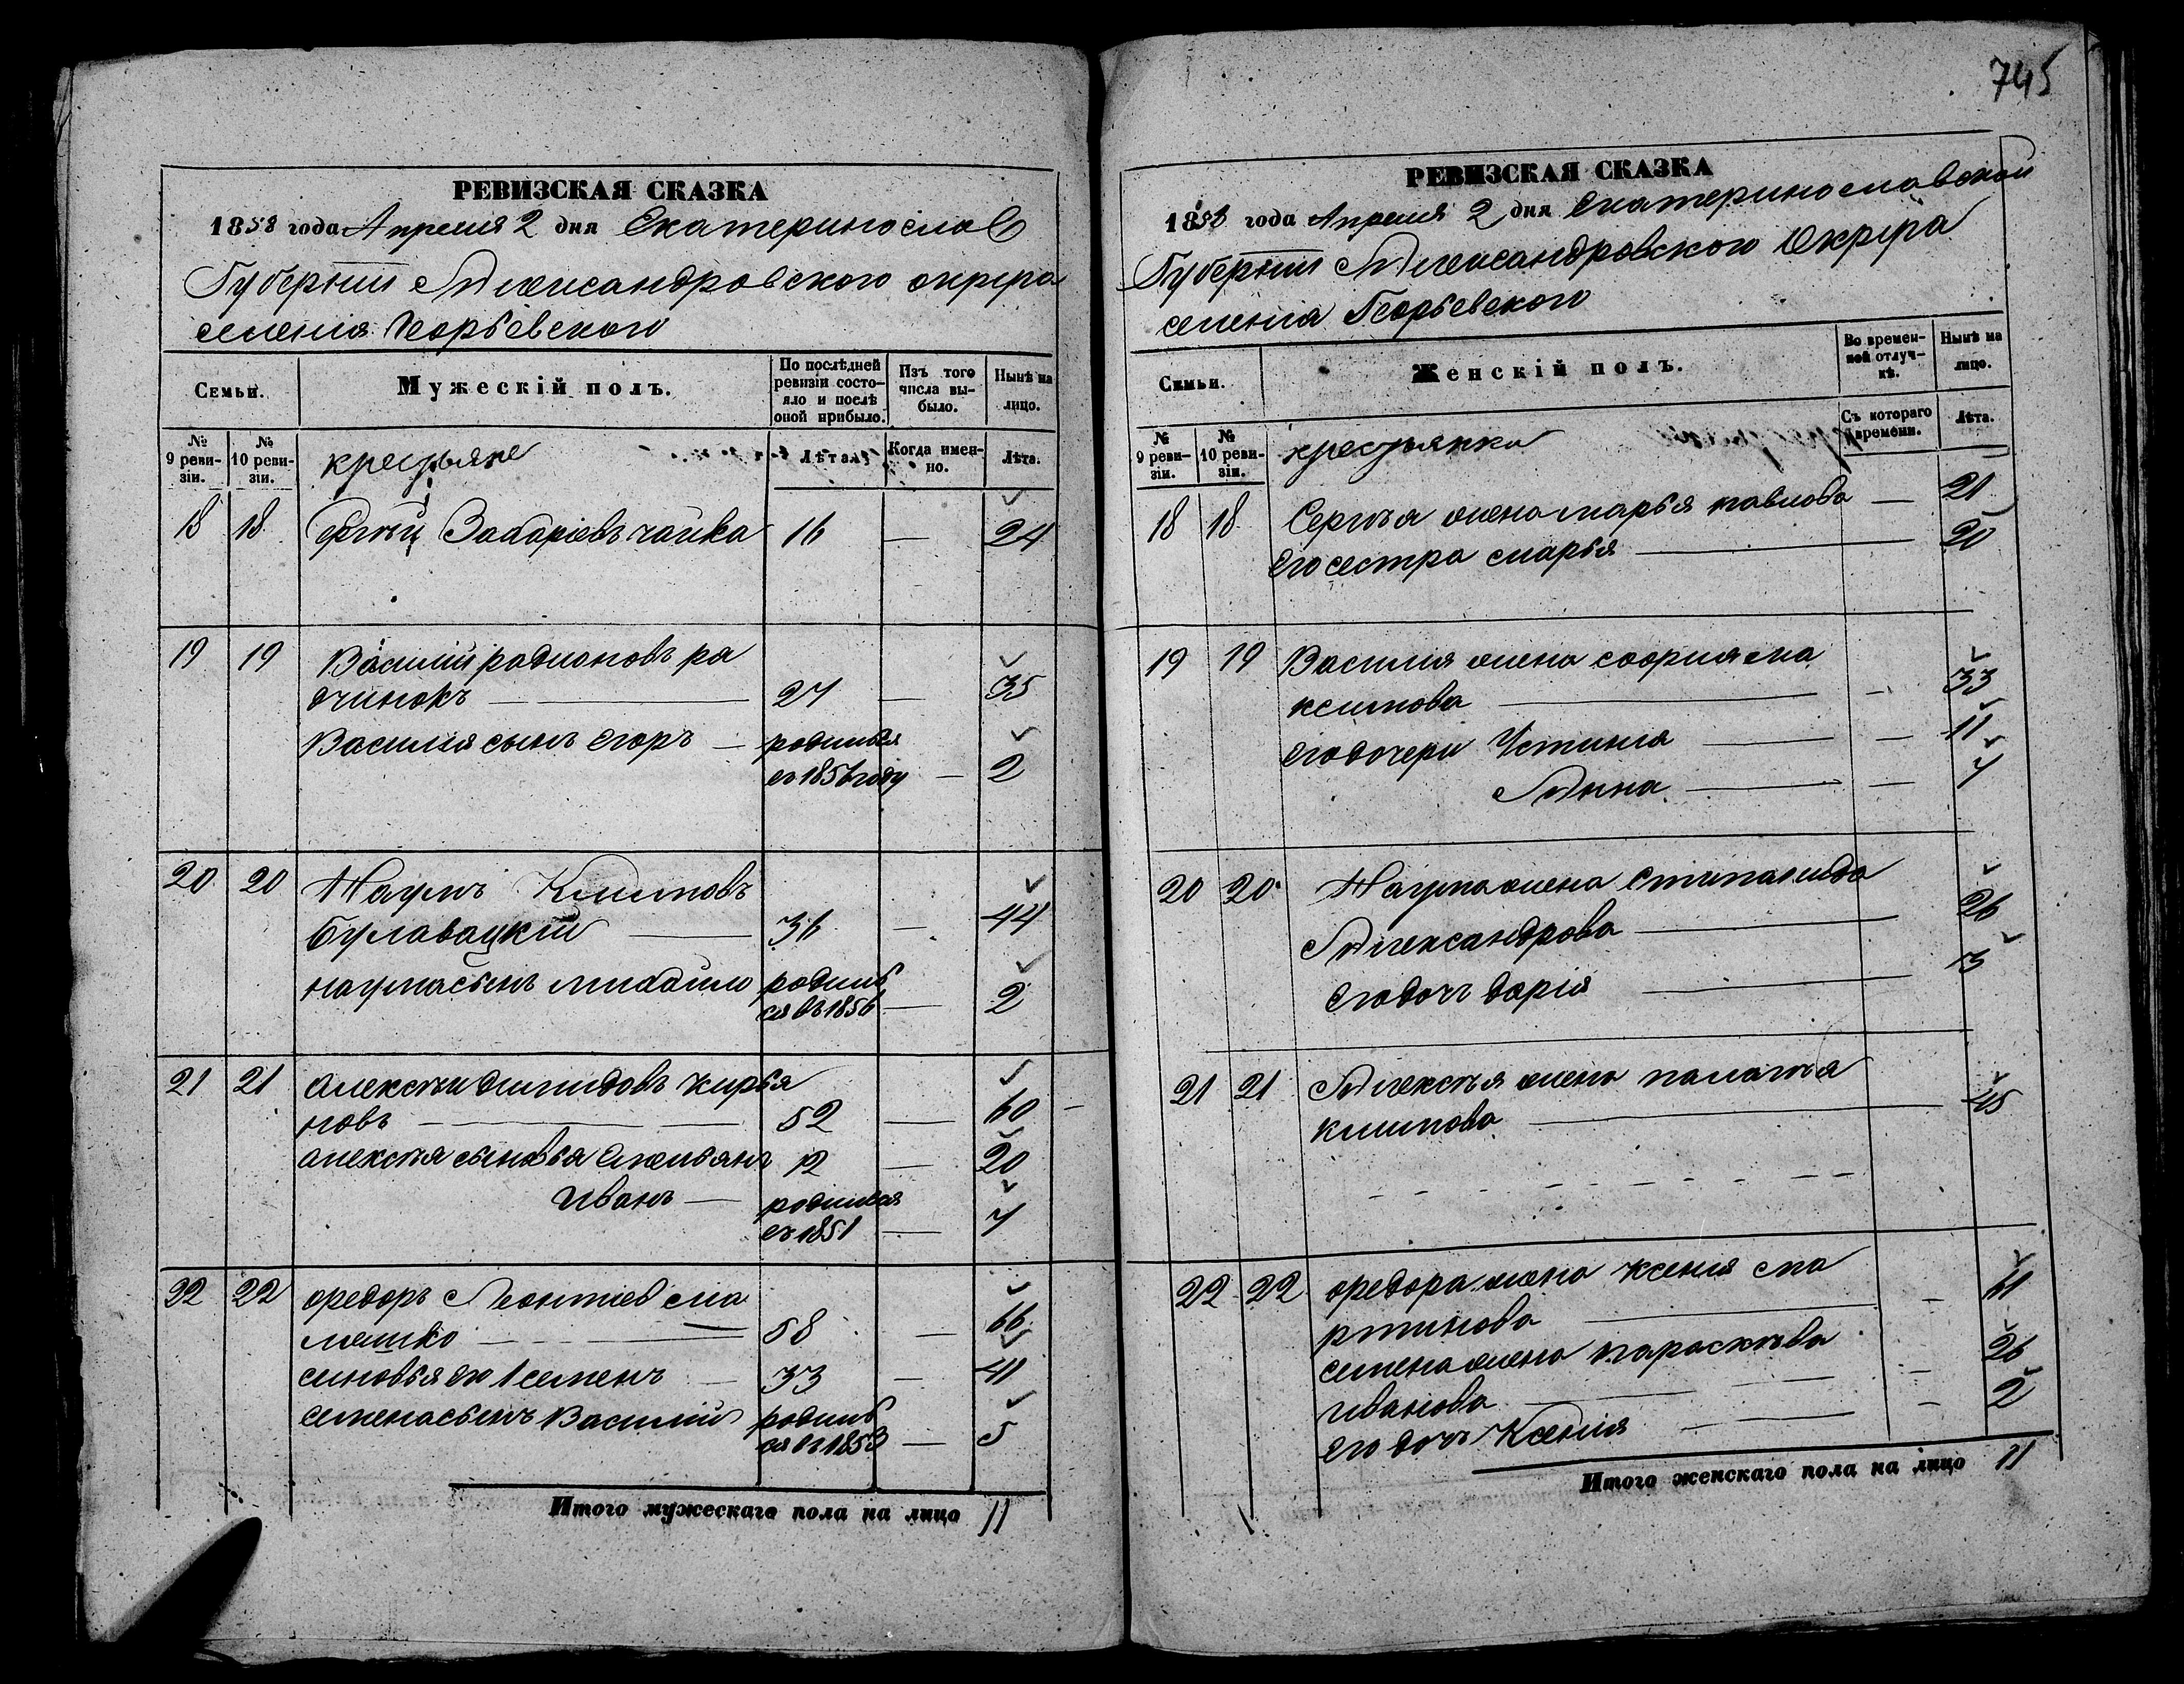 745
РЕВИЗСКАЯ СКАЗКА
1858 года Апреля 2 дня Екатеринослав
Губернии Александровского округа
селенія Георьевского
Семьи.
Мужескій полъ.
По послѣдней ревизіи состояло и послѣ оной прибыло.
Изъ того числа выбыло.
Нынѣ на лицо.
№ 9 ревизіи.
№ 10 ревизіи.
крестьяне
Лѣта.
Когда именно.
Лѣта.
18 18 Захаріевъ чайка 16 — 24
19 19 Василий радионовъ ра
дчинокъ — 27 — 35
Василия сынъ егоръ — родился
въ 1856 году — 2
20 20 Наумъ Климовъ
Булавацкій — 36 — 44
наума сынъ михайло родил
ся въ 1856 — 2
21 21 алексѣи димидовъ кирья
новъ — 52 — 60
алексѣя сыновья емельянъ 12 — 20
иванъ — родился
въ 1851 — 7
22 22 федоръ Леонтиев ма
лашко — 58 — 66
сыновья его 1 семенъ — 33 — 41
семена сынъ Василий родил
ся въ 1853 — 5
Итого мужескаго пола на лицо 11
РЕВИЗСКАЯ СКАЗКА
1858 года Апреля 2 дня Екатеринославской
Губернии Александровского Округа
селения Георьевского
Семьи.
Женскій полъ.
Во временной отлучкѣ.
Нынѣ на лицо.
№ 9 ревизіи.
№ 10 ревизіи.
крестьянки
Съ котораго времени.
Лѣта.
18 18 Сергѣя жена марья павлова — 21
его сестра марья — 20
19 19 Василия жена софия ма
ксимова — 33
его дочери Устиния — 11
Анна — 7
20 20 Наума жена степанида
Александрова — 26
его доч дарія — 13
21 21 Алексѣя жена палагѣя
климова — 45
22 22 федора жена ксения ма
ртинова — 61
семена жена параскѣва
иванова — 26
его дочъ Ксения — 2
Итого женскаго пола на лицо 11